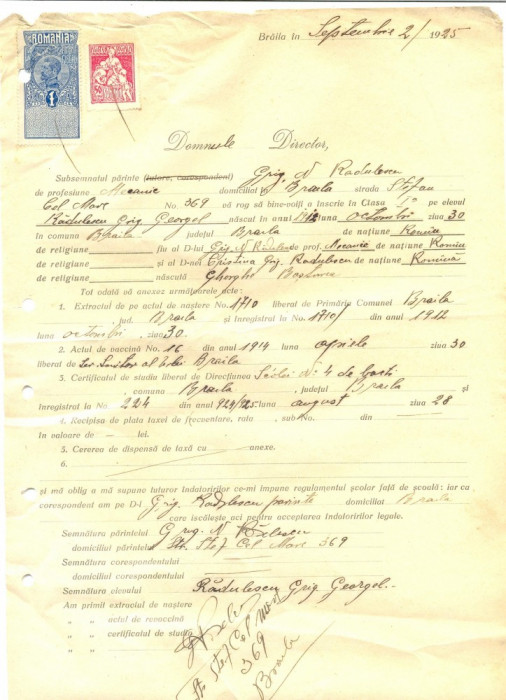 Brăila în Septembrie 2/ 1925
ROMANIA
1
Domnule Director,
Subsemnatul părinte (tutore, corespondent) Grig. N Radulescu
de profesiune Mecanic domiciliat în Braila strada Stefan
Cel Mare No. 369 vă rog să bine-voiți a înscrie în Clasa I-a pe elevul
Rădulescu Grig. Georgel născut în anul 1912 luna octombri ziua 30
în comuna Braila județul Braila de națiune Romîn
de religiune fiu al D-lui Grig. N Rădulescu prof. Mecanic de națiune Romîn
de religiune și al D-nei Cristina Grig. Radulescu de națiune Romîna
de religiune născută Gheorghe
Tot odată vă anexez următoarele acte:
1. Extractul de pe actul de naștere No. 1710 liberat de Primăria Comunei Braila
, jud. Braila și înregistrat la No. 1710/ din anul 1912
luna octombri, ziua 30.
2. Actul de vaccină No. 16 din anul 1914 luna aprilie ziua 30
liberat de Braila
3. Certificatul de studiu liberat de Direcțiunea Școlei No. 4 de
, comuna Braila, județul Braila și
înregistrat la No. 224 din anul 924/925 luna august ziua 28
4. Recipisa de plata taxei de frecuentare, rata , sub No. din
în valoare de — lei.
5. Cererea de dispensă de taxă cu anexe.
6.
și mă oblig a mă supune tuturor îndatoririlor ce-mi impune regulamentul școlar față de școală: iar cu
corespondent am pe D-l Grig. Radulescu parinte domiciliat Braila
care iscălește aci pentru acceptarea îndatoririlor legale.
Semnătura părintelui Grig. N
domiciliul părintelui Str. Stef Cel Mare 369
Semnătura corespondentului
domiciliul corespondentului
Semnătura elevului Rădulescu Grig. Georgel.
Am primit extractul de naștere
„ „ actul de revaccină
„ „ certificatul de studiu
„ „
Str. Stef Cel Mare
369
Braila